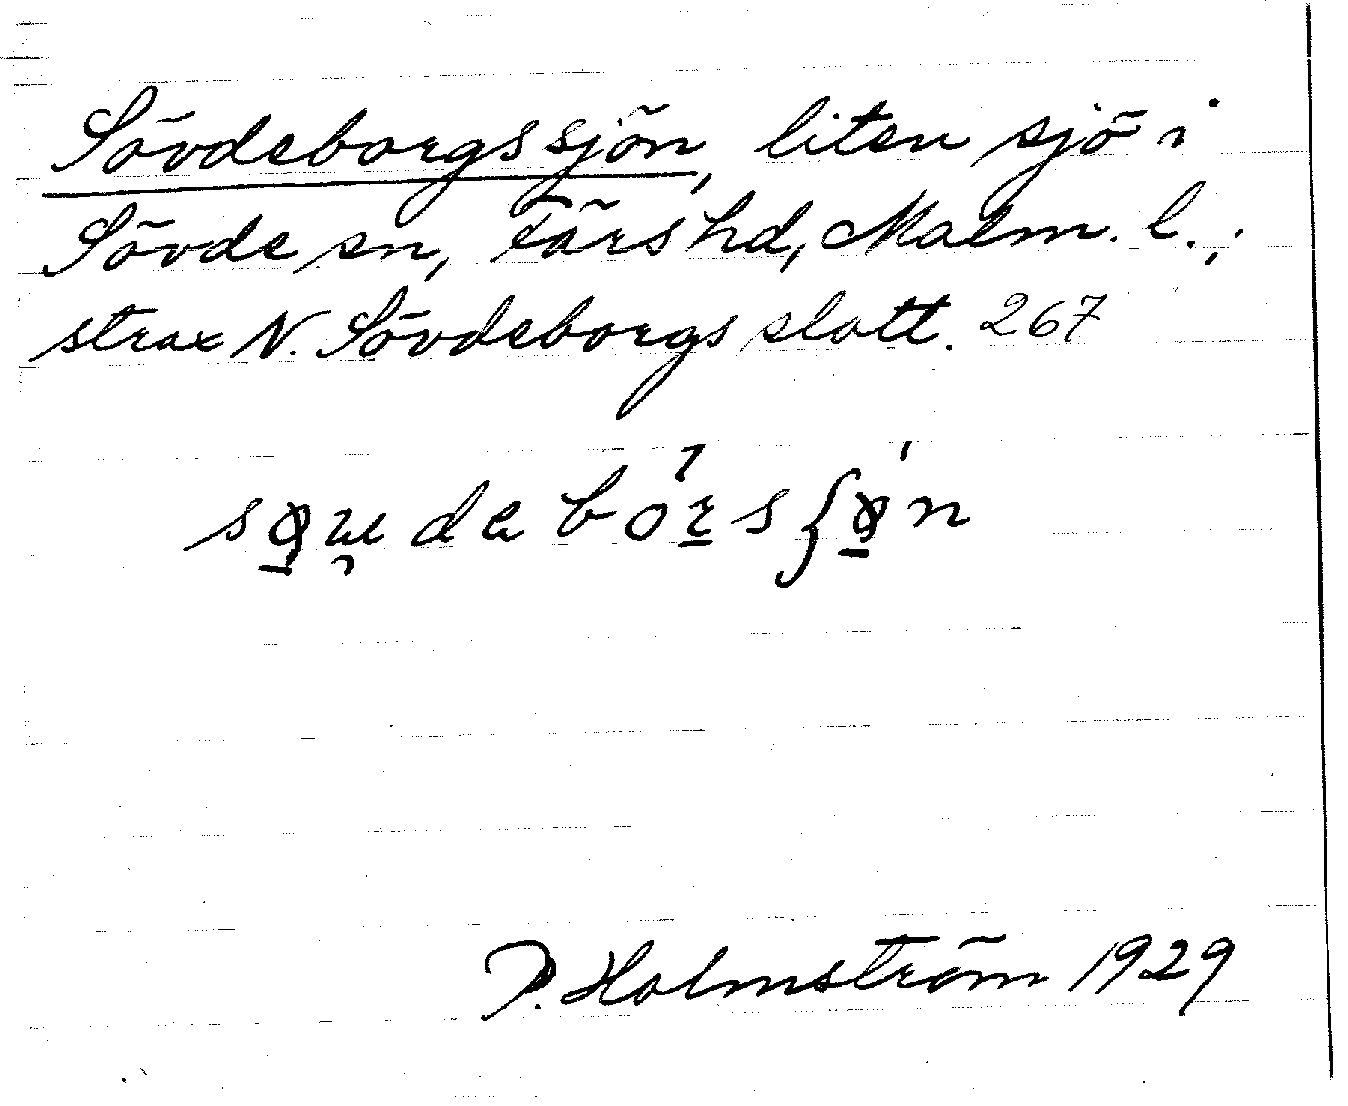 Sövdeborgssjön, liten sjö i
Sövde sn, Färs hd, Malm. l.;
strax N. Sövdeborgs slott. 267
P. Holmström 1929